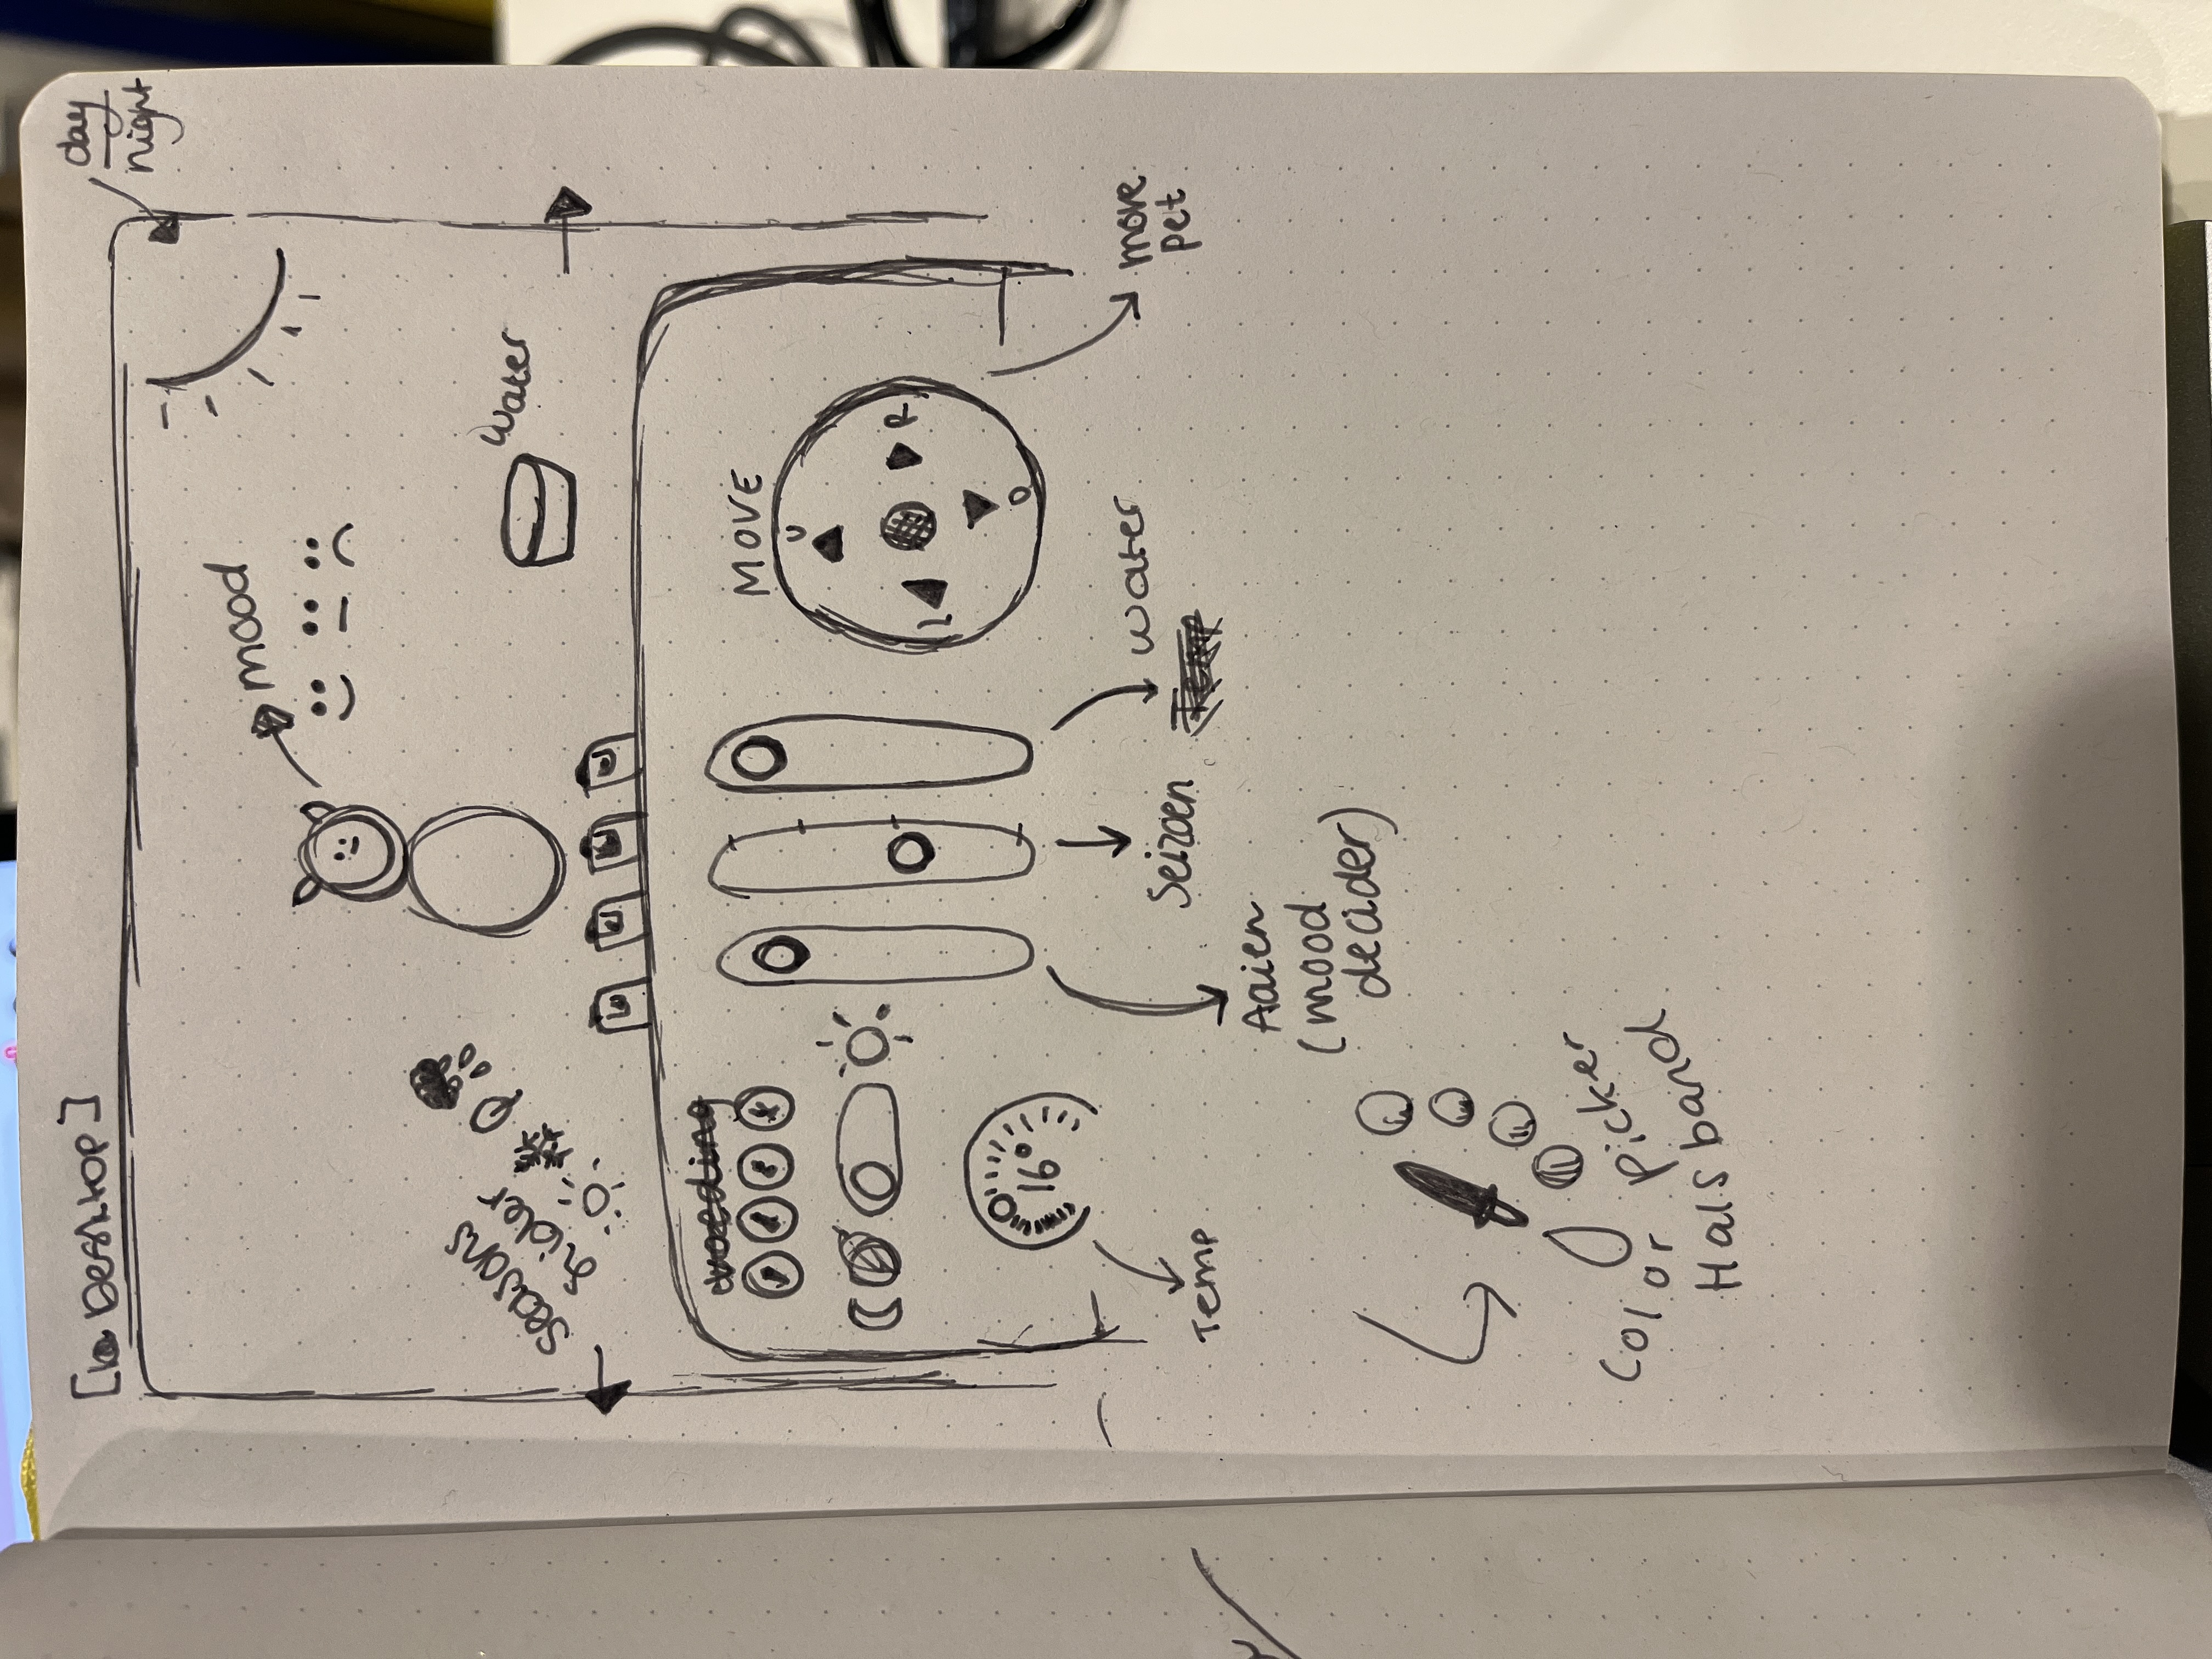 Desktop]
day
night
mood
seasons
slider
water
voeding
MOVE
U
L
R
D
16°
Temp
Aaien
(mood
decider)
Seizoen
water
Temp
move
pet
Color picker
Halsband